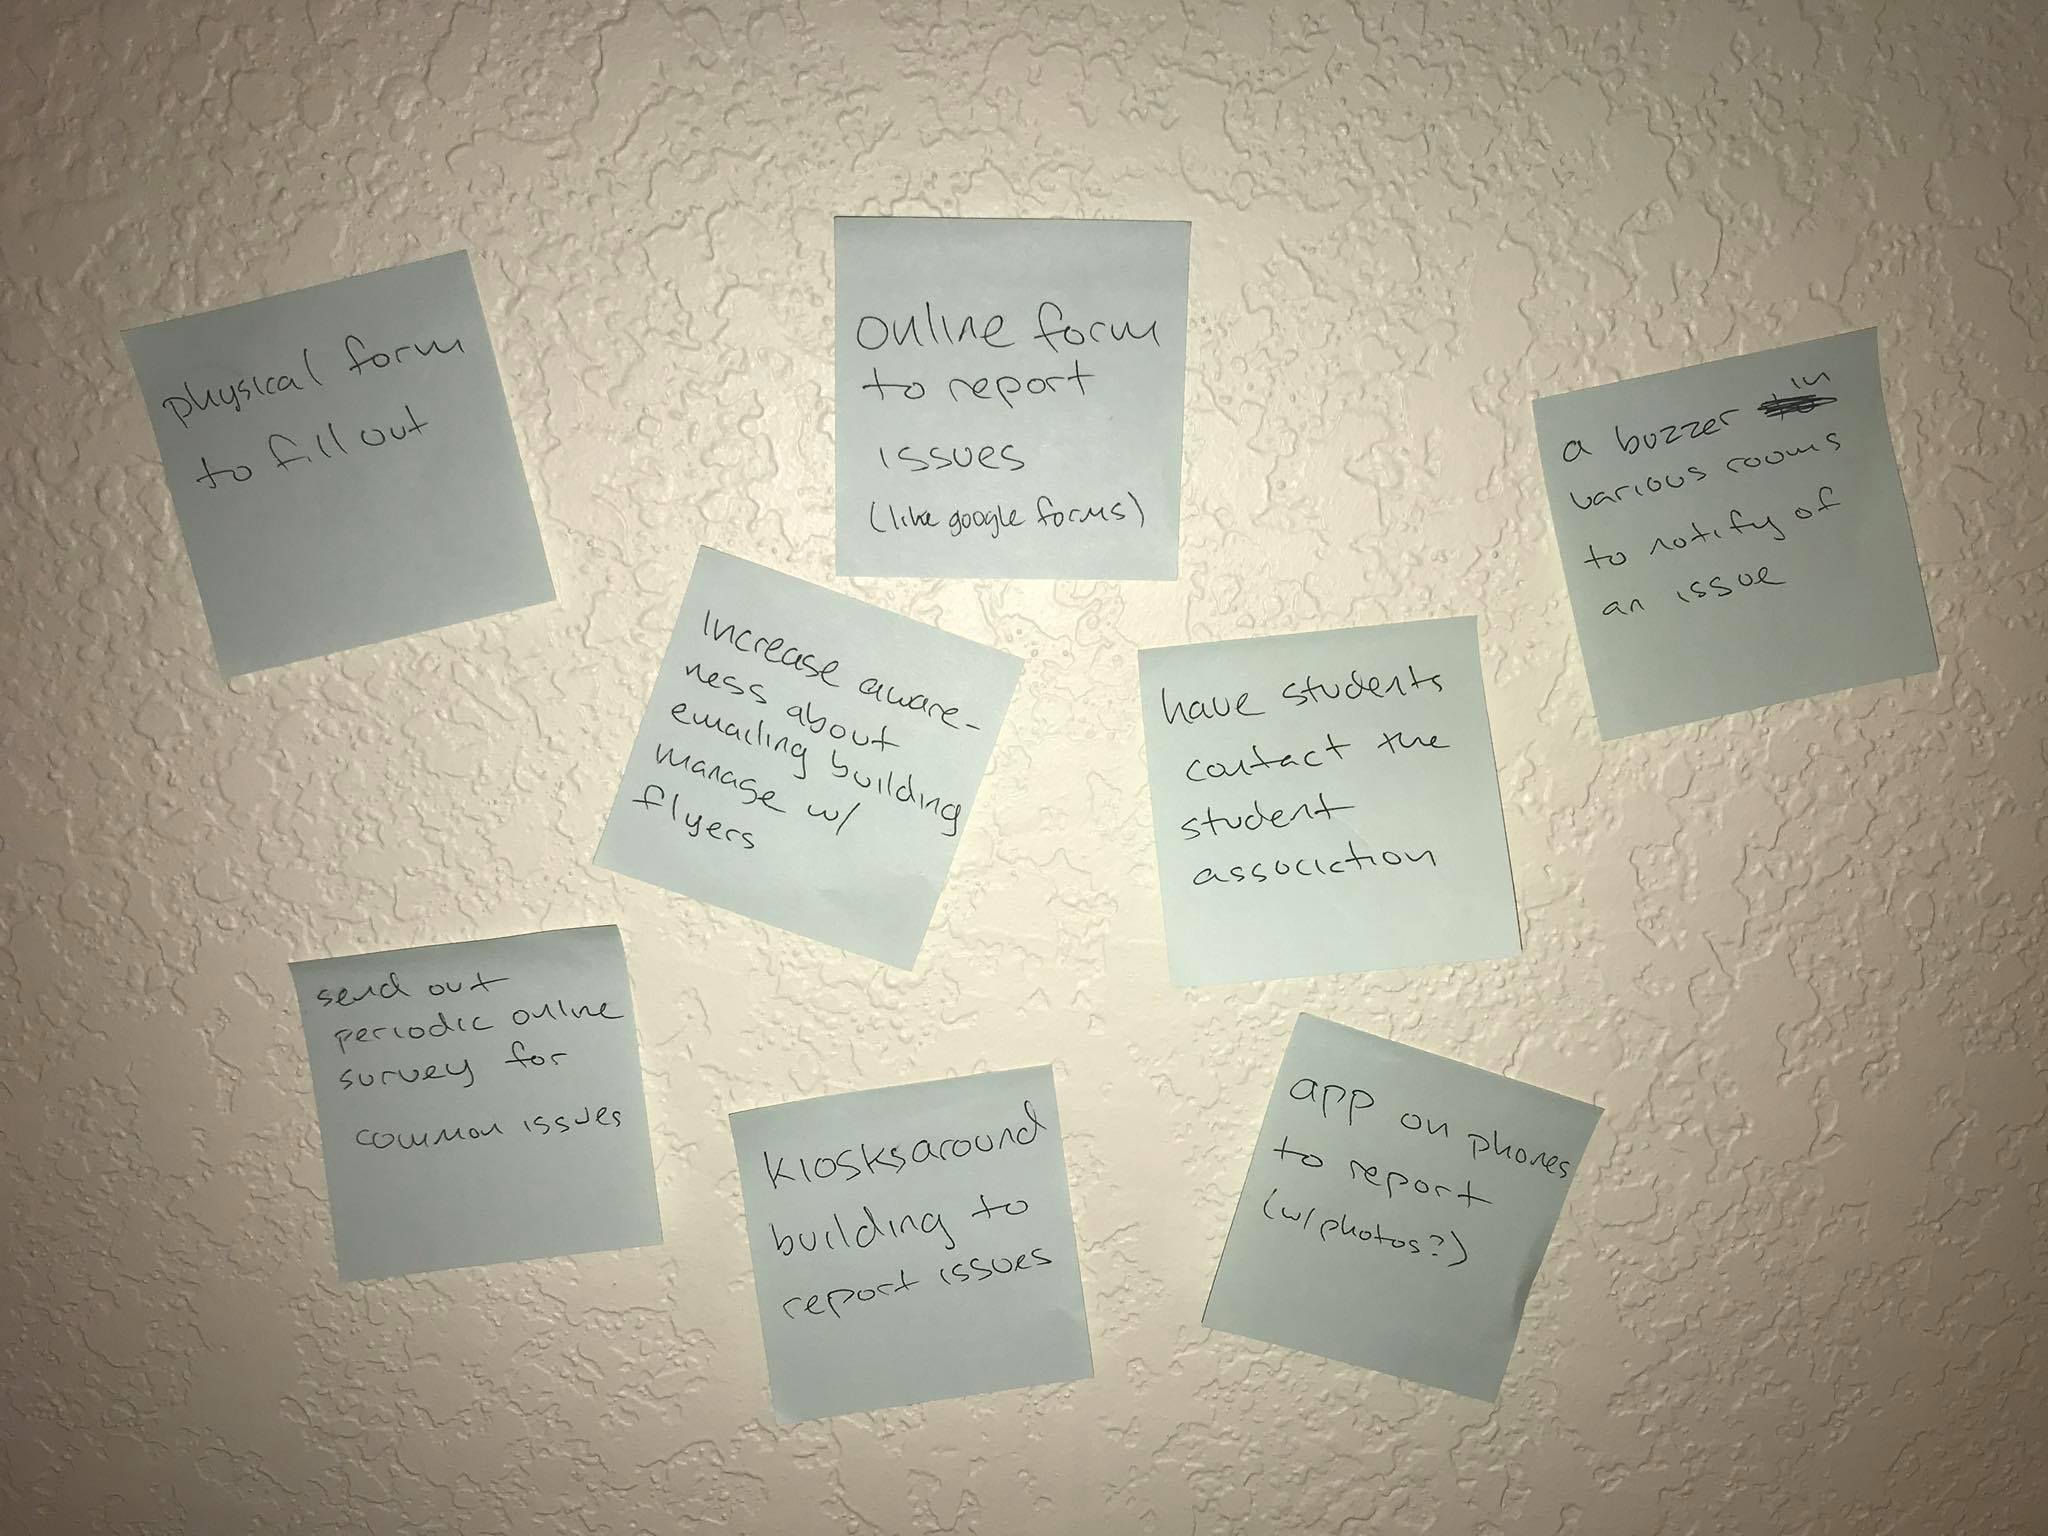 physical form
to fill out
online form
to report
issues
(like google forms)
a buzzer in
various rooms
to notify of
an issue
increase aware-
ness about
emailing building
manage w/
flyers
have students
contact the
student
association
send out
periodic online
survey for
common issues
kiosks around
building to
report issues
app on phones
to report
(w/photos?)